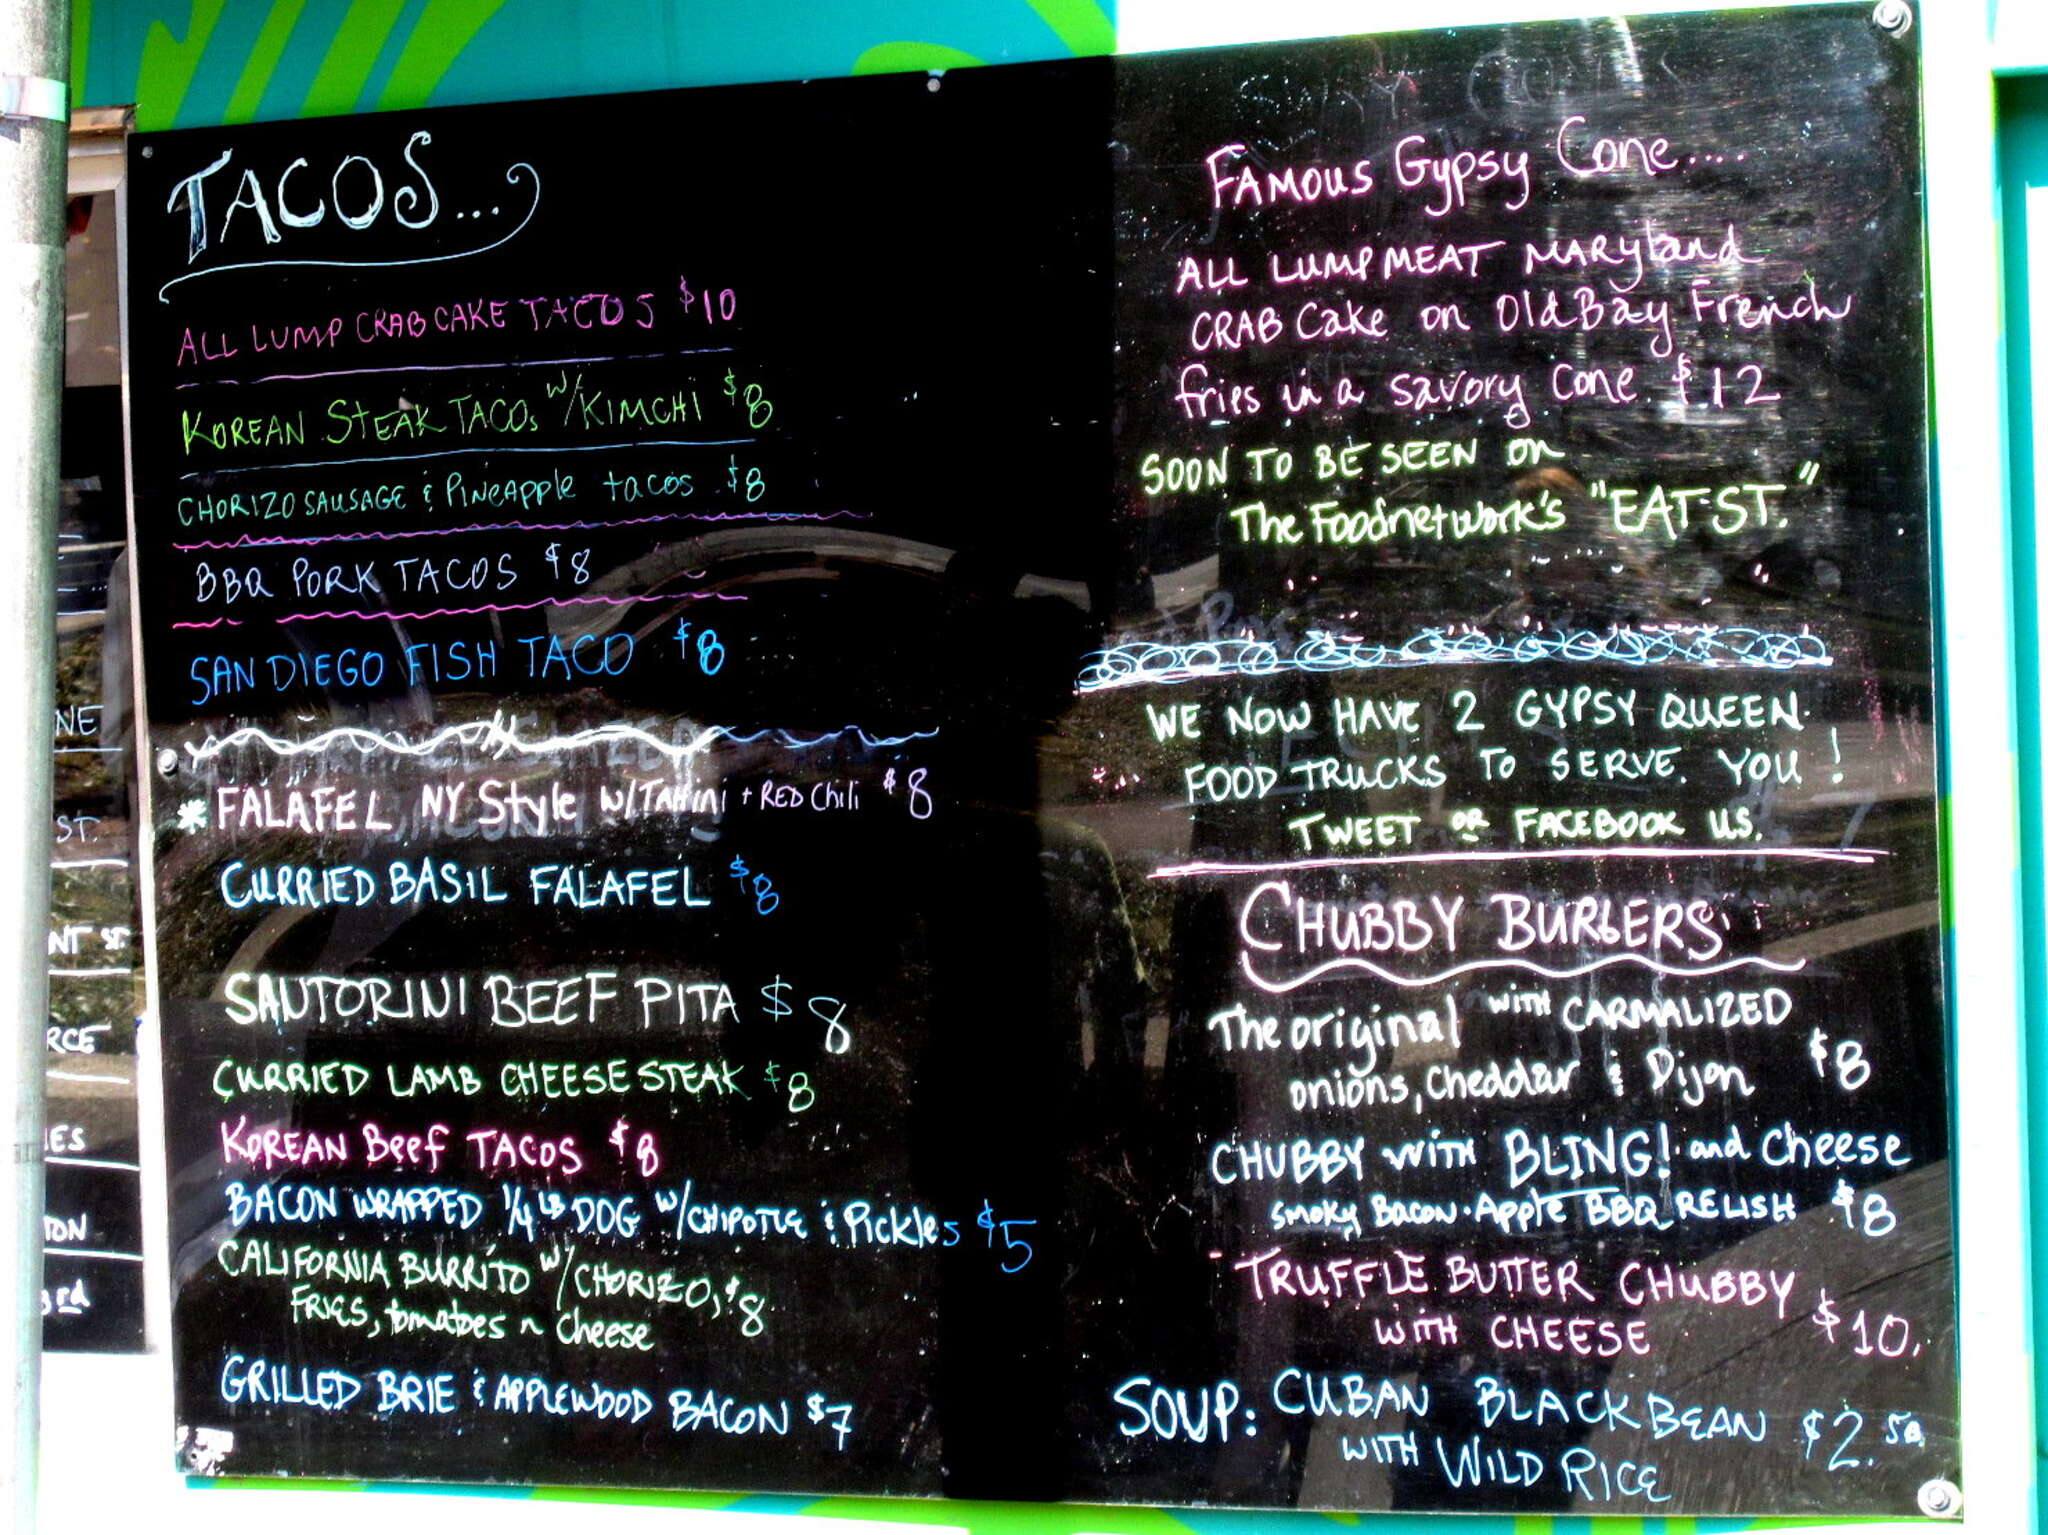 TACOS...
ALL LUMP CRAB CAKE TACOS $10
KOREAN STEAK TACOS W/KIMCHI $8
CHORIZO SAUSAGE & PINEAPPLE tacos $8
BBQ PORK TACOS $8
SAN DIEGO FISH TACO $8
* FALAFEL NY Style W/TAHINI + RED Chili $8
CURRIED BASIL FALAFEL $8
SANTORINI BEEF PITA $8
CURRIED LAMB CHEESESTEAK $8
KOREAN Beef TACOS $8
BACON WRAPPED 1/4 LB DOG W/CHIPOTLE & Pickles $5
CALIFORNIA BURRITO W/CHORIZO, $8
FRIES, tomatoes n cheese
GRILLED BRIE & APPLEWOOD BACON $7
FAMOUS Gypsy Cone....
ALL LUMP MEAT MARYland
CRAB Cake on Old Bay French
fries in a savory cone $12
SOON TO BE SEEN on
The Foodnetwork's "EAT ST."
WE NOW HAVE 2 GYPSY QUEEN
FOOD TRUCKS TO SERVE. YOU!
TWEET OR FACEBOOK US.
CHUBBY BURGERS
The original WITH CARMALIZED
onions, Cheddar & Dijon $8
CHUBBY WITH BLING! and Cheese
SMOKY BACON · Apple BBQ RELISH $8
TRUFFLE BUTTER CHUBBY
WITH CHEESE $10.
SOUP: CUBAN BLACK BEAN $2.50
WITH WILD RICE
NE
ST.
NT ST.
RCE
ES
ON
rd